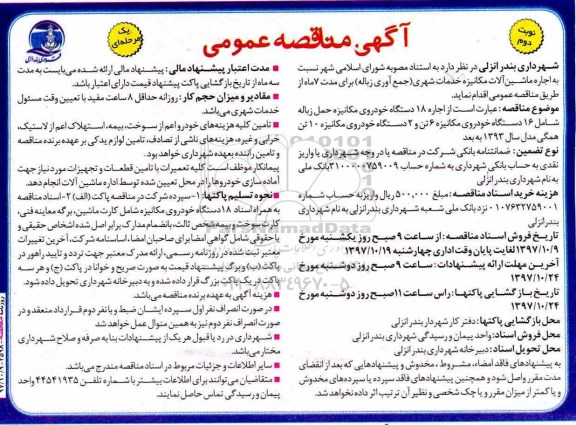 نوبت دوم
آگهی مناقصه عمومی
یک مرحله‌ای
شهرداری بندر انزلی در نظر دارد به استناد مصوبه شورای اسلامی شهر نسبت
به اجاره ماشین آلات مکانیزه خدمات شهری (جمع آوری زباله) برای مدت ۷ ماه از
طریق مناقصه عمومی اقدام نماید.
موضوع مناقصه: عبارت است از اجاره ۱۸ دستگاه خودروی مکانیزه حمل زباله
شامل ۱۶ دستگاه خودروی مکانیزه ۶ تن و ۲ دستگاه خودروی مکانیزه ۱۰ تن
همگی مدل سال ۱۳۹۳ به بعد
نوع تضمین: ضمانتنامه بانکی شرکت در مناقصه یا در وجه شهرداری یا واریز
نقدی به حساب بانکی شهرداری به شماره حساب ۳۱۰۰۰۰۷۵۹۰۰۹ بانک ملی
به نام شهرداری بندر انزلی
هزینه خرید اسناد مناقصه: مبلغ ۵۰۰,۰۰۰ ریال واریز به حساب شماره
۰۱۰۷۶۳۲۷۵۹۰۰۱ نزد بانک ملی شعبه شهرداری بندر انزلی به نام شهرداری
بندر انزلی
تاریخ فروش اسناد مناقصه: از ساعت ۹ صبح روز یکشنبه مورخ
۱۳۹۷/۱۰/۹ لغایت پایان وقت اداری چهارشنبه ۱۳۹۷/۱۰/۱۹
آخرین مهلت ارائه پیشنهادات: ساعت ۹ صبح روز دوشنبه مورخ
۱۳۹۷/۱۰/۲۴
تاریخ بازگشایی پاکتها: راس ساعت ۱۱ صبح روز دوشنبه مورخ
۱۳۹۷/۱۰/۲۴
محل بازگشایی پاکتها: دفتر کار شهردار بندر انزلی
محل فروش اسناد: واحد پیمان و رسیدگی شهرداری بندر انزلی
محل تحویل اسناد: دبیرخانه شهرداری بندر انزلی
به پیشنهادهای فاقد امضاء، مشروط، مخدوش و پیشنهادهایی که بعد از انقضای
مدت مقرر واصل شود و همچنین پیشنهادهای فاقد سپرده یا سپرده‌های مخدوش
و یا کمتر از میزان مقرر و یا چک شخصی و نظیر آن ترتیب اثر داده نخواهد شد.
• مدت اعتبار پیشنهاد مالی: پیشنهاد مالی ارائه شده می‌بایست به مدت
سه ماه از تاریخ بازگشایی پاکت پیشنهاد قیمت دارای اعتبار باشد.
• مقادیر و میزان حجم کار: روزانه حداقل ۸ ساعت مفید با تعیین وقت مسئول
خدمات شهری می‌باشد.
• تامین کلیه هزینه‌های خودرو اعم از سوخت، بیمه، استهلاک اعم از لاستیک،
خرابی و غیره، هزینه‌های ناشی از تصادف، تامین لوازم یدکی بر عهده برنده مناقصه
و تامین راننده بعهده شهرداری خواهد بود.
پیمانکار موظف است کلیه تعمیرات با تامین قطعات و تجهیزات مورد نیاز جهت
آماده سازی خودروها را در محل تعیین شده توسط اداره ماشین آلات انجام دهد.
• نحوه تسلیم پاکتها: ۱- سپرده شرکت در مناقصه پاکت (الف) ۲- اسناد مناقصه
به همراه اسناد ۱۸ دستگاه خودروی مکانیزه شامل کارت ماشین، برگه معاینه فنی،
کارت سوخت و بیمه شخص ثالث، بانضمام مدارک برابر اصل شده اشخاص حقیقی و
یا حقوقی شامل گواهی امضا برای صاحبان امضا، اساسنامه شرکت، آخرین تغییرات
معتبر ثبت شده در روزنامه رسمی، ارائه مدرک معتبر جهت تردد و تایید راهور در
پاکت (ب) و برگ پیشنهاد قیمت به صورت صریح و خوانا در پاکت (ج) و هر سه
پاکت در یک پاکت بزرگ قرار داده شده و به دبیرخانه شهرداری تحویل داده شود.
• هزینه آگهی به عهده برنده مناقصه می‌باشد.
• در صورت انصراف نفر اول سپرده ایشان ضبط و با نفر دوم قرارداد منعقد و در
صورت انصراف نفر دوم نیز به همین منوال عمل خواهد شد
• شهرداری در رد یا قبول هر یک از پیشنهادات بنا به صرفه و صلاح شهرداری
مختار می‌باشد.
• سایر اطلاعات و جزئیات مربوط در اسناد مناقصه مندرج می‌باشد.
• متقاضیان می‌توانند برای اطلاعات بیشتر با شماره تلفن ۴۴۵۴۱۹۳۵ واحد
پیمان و رسیدگی تماس حاصل نمایند.